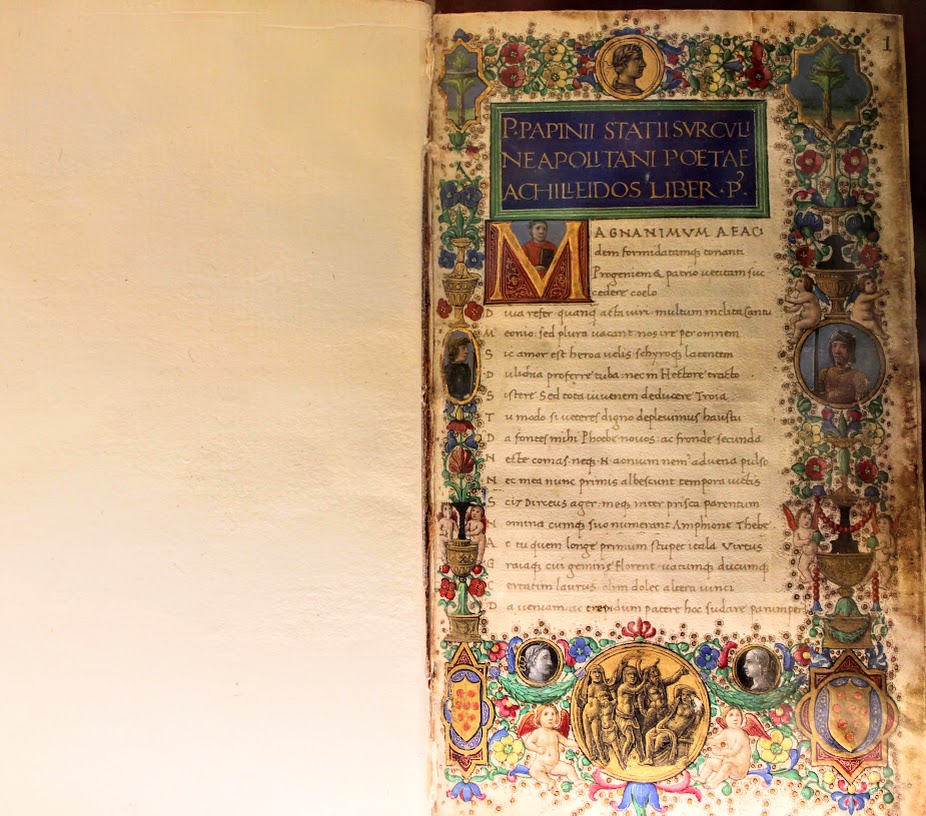 1
P. PAPINII STATII SVRCVLI
NEAPOLITANI POETAE
ACHILLEIDOS LIBER · P̊.
MAGNANIMVM AEAC
dem formidatamq; tonanti
Progeniem & patrio uetitam suc
cedere coelo
Diua refer quanq̃ acta uiri multum inclita Cantu
Meonio: sed plura uacant nos ire per omnem
Sic amor est heroa uelis schyroq; latentem
Dulichia proferre tuba: nec in Hectore tracto
Sistere Sed tota iuuenem deducere Troia
Tu modo si ueteres digno depleuimus haustu
Da fontes mihi Phoebe nouos: ac fronde secunda
Necte comas. neq; N. aonium nem⁹ aduena pulso
Nec mea nunc primis albescunt tempora uictis
Scit Dirceus ager: meq; inter prisca parentum
Nomina cumq; suo numerant Amphione Thebe
At tu quem longe primum stupet itala Virtus
Graiaq; cui gemine Florent uatumq; ducumq;
Certatim laurus: olim dolet altera uinci
Da ueniam: ac trepidum patere hoc sudare parumper